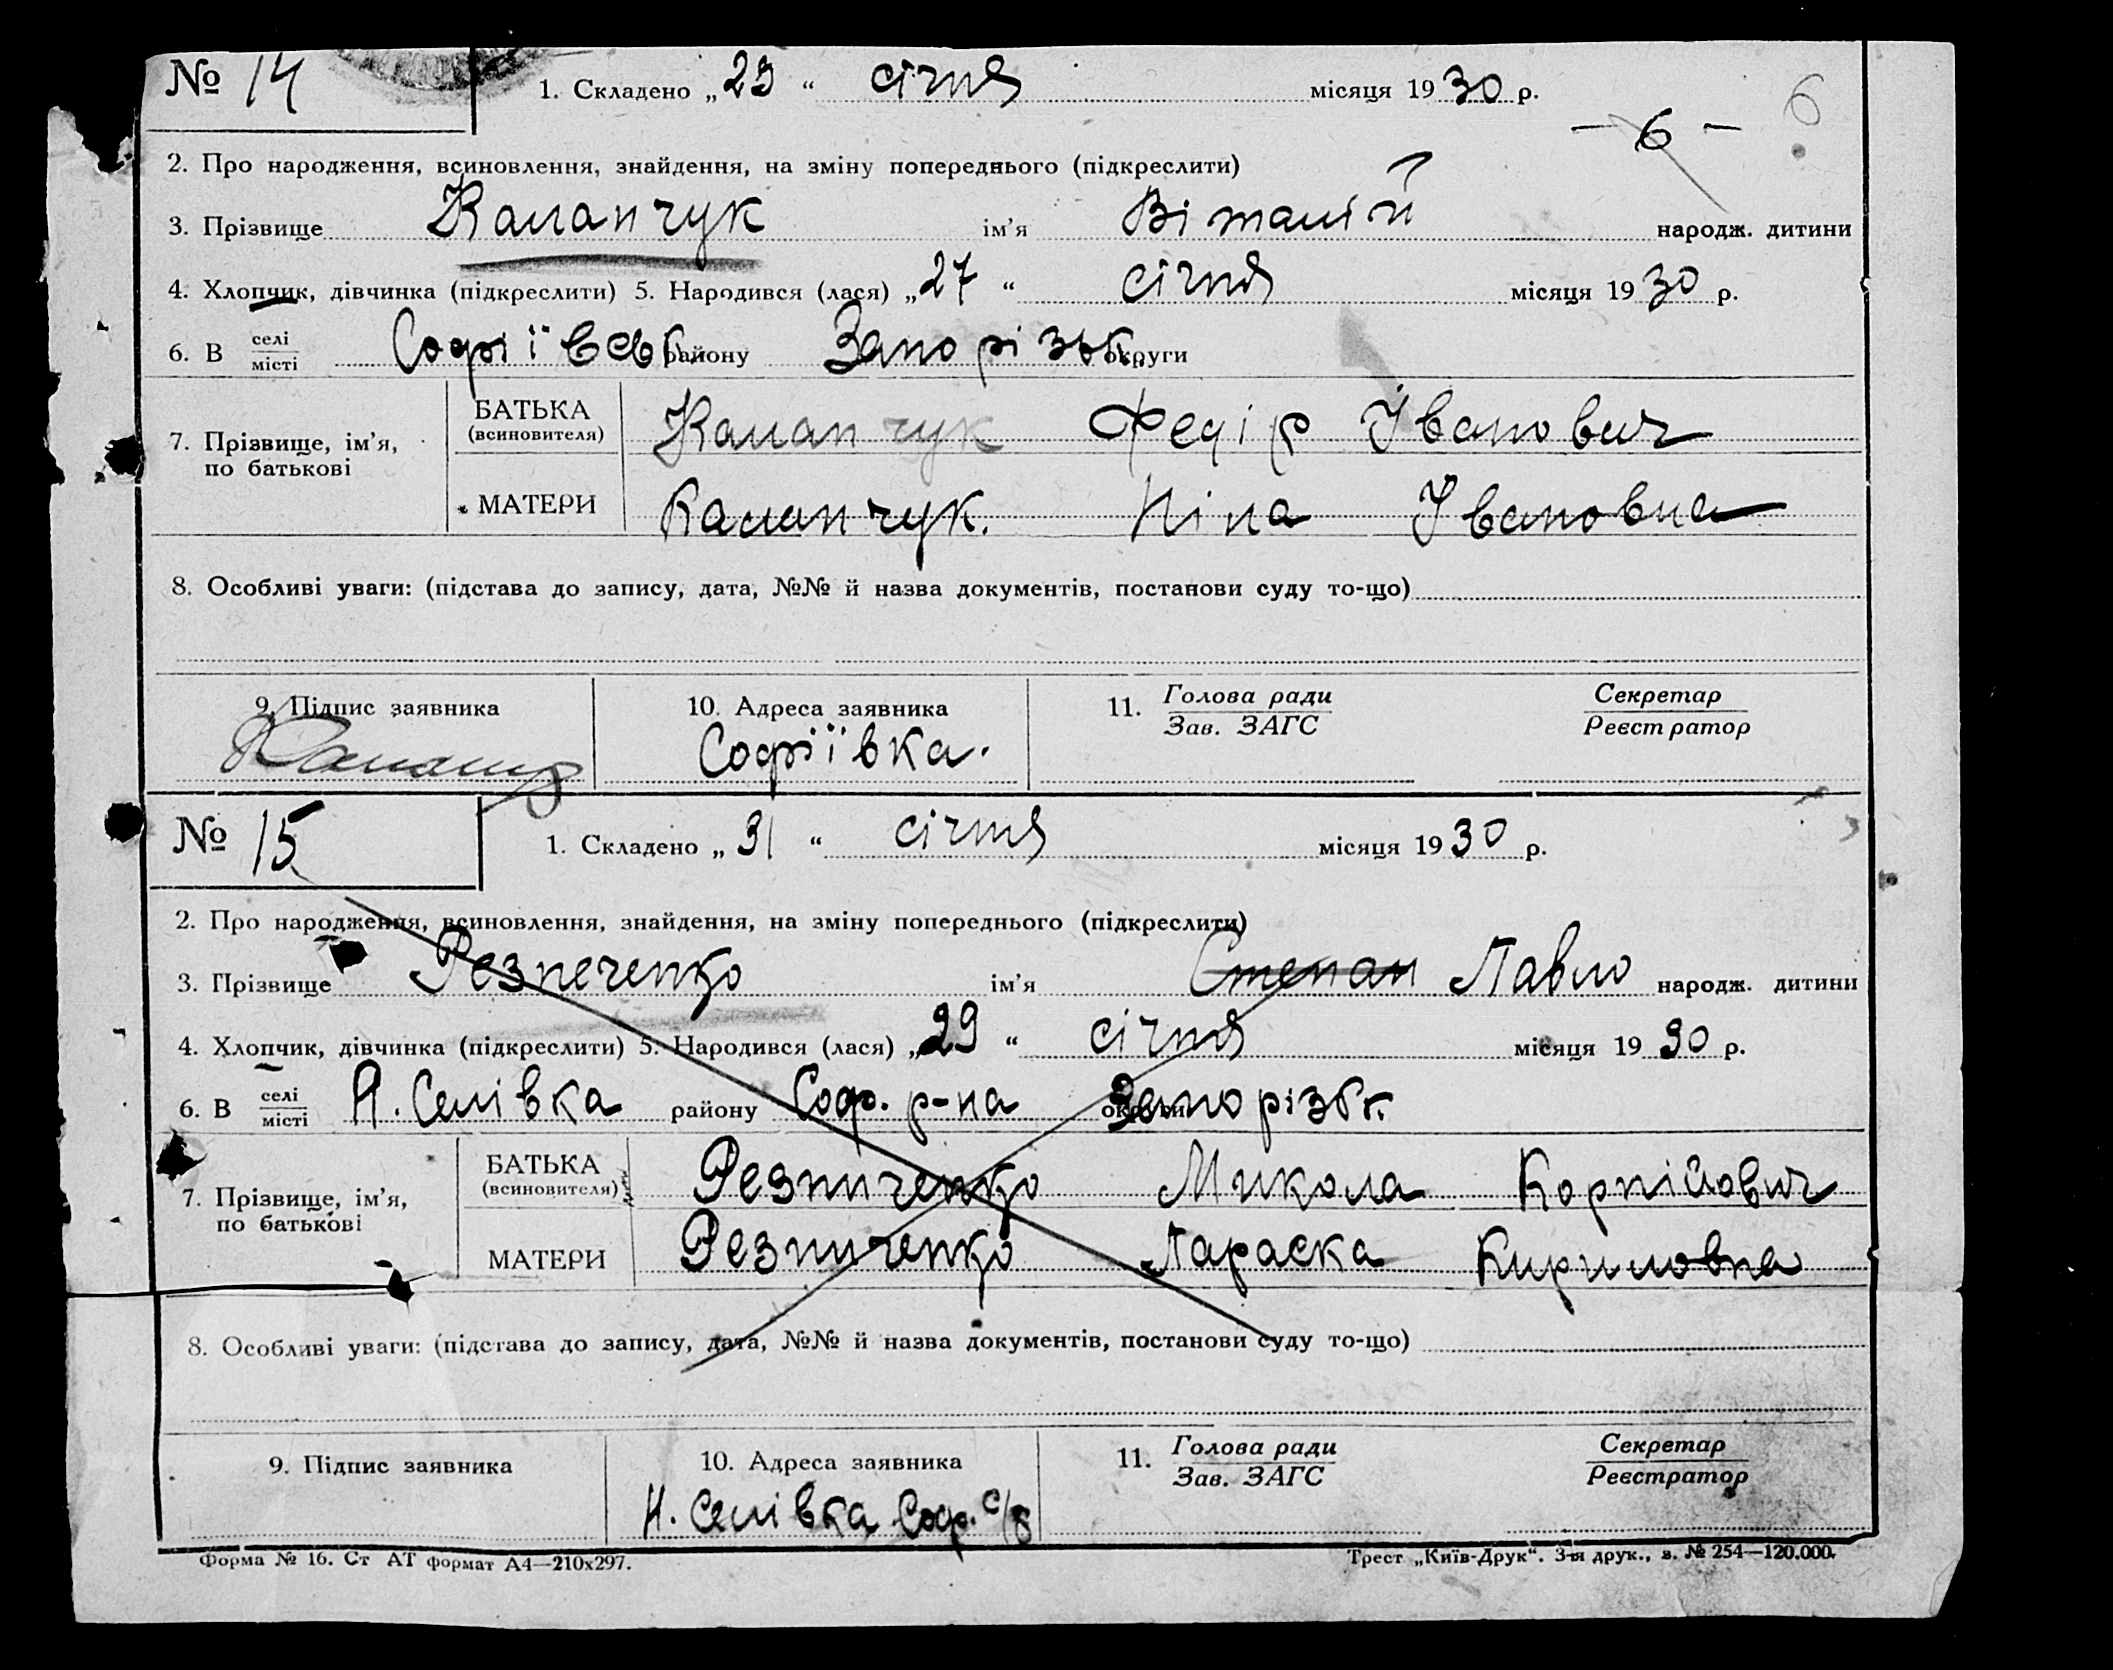 № 14 1. Складено „ 29 “ січня місяця 19 30 р. 6
— 6 —
2. Про народження, всиновлення, знайдення, на зміну попереднього (підкреслити)
3. Прізвище Каланчук ім’я Віталій народж. дитини
4. Хлопчик, дівчинка (підкреслити) 5. Народився (лася) „ 27 “ січня місяця 19 30 р.
6. В селі/місті Софіївськ. району Запорізьк. округи
7. Прізвище, ім’я, по батькові
БАТЬКА (всиновителя) Каланчук Федір Іванович
МАТЕРИ Каланчук. Ніна Івановна
8. Особливі уваги: (підстава до запису, дата, №№ й назва документів, постанови суду то-що)
9. Підпис заявника 10. Адреса заявника 11. Голова ради/Зав. ЗАГС Секретар/Реєстратор
Софіївка.
№ 15 1. Складено „ 31 “ січня місяця 19 30 р.
2. Про народження, всиновлення, знайдення, на зміну попереднього (підкреслити)
3. Прізвище Резнеченко ім’я Степан Павло народж. дитини
4. Хлопчик, дівчинка (підкреслити) 5. Народився (лася) „ 29 “ січня місяця 19 30 р.
6. В селі/місті Н. Селівка району Соф. р-на округи Запорізьк
7. Прізвище, ім’я, по батькові
БАТЬКА (всиновителя) Резниченко Микола Корнійович
МАТЕРИ Резниченко Параска Кириловна
8. Особливі уваги: (підстава до запису, дата, №№ й назва документів, постанови суду то-що)
9. Підпис заявника 10. Адреса заявника 11. Голова ради/Зав. ЗАГС Секретар/Реєстратор
Н. Селівка Соф.
Форма № 16. Ст АТ формат А4—210х297. Трест „Київ-Друк“. 3-я друк., з. № 254—120.000.